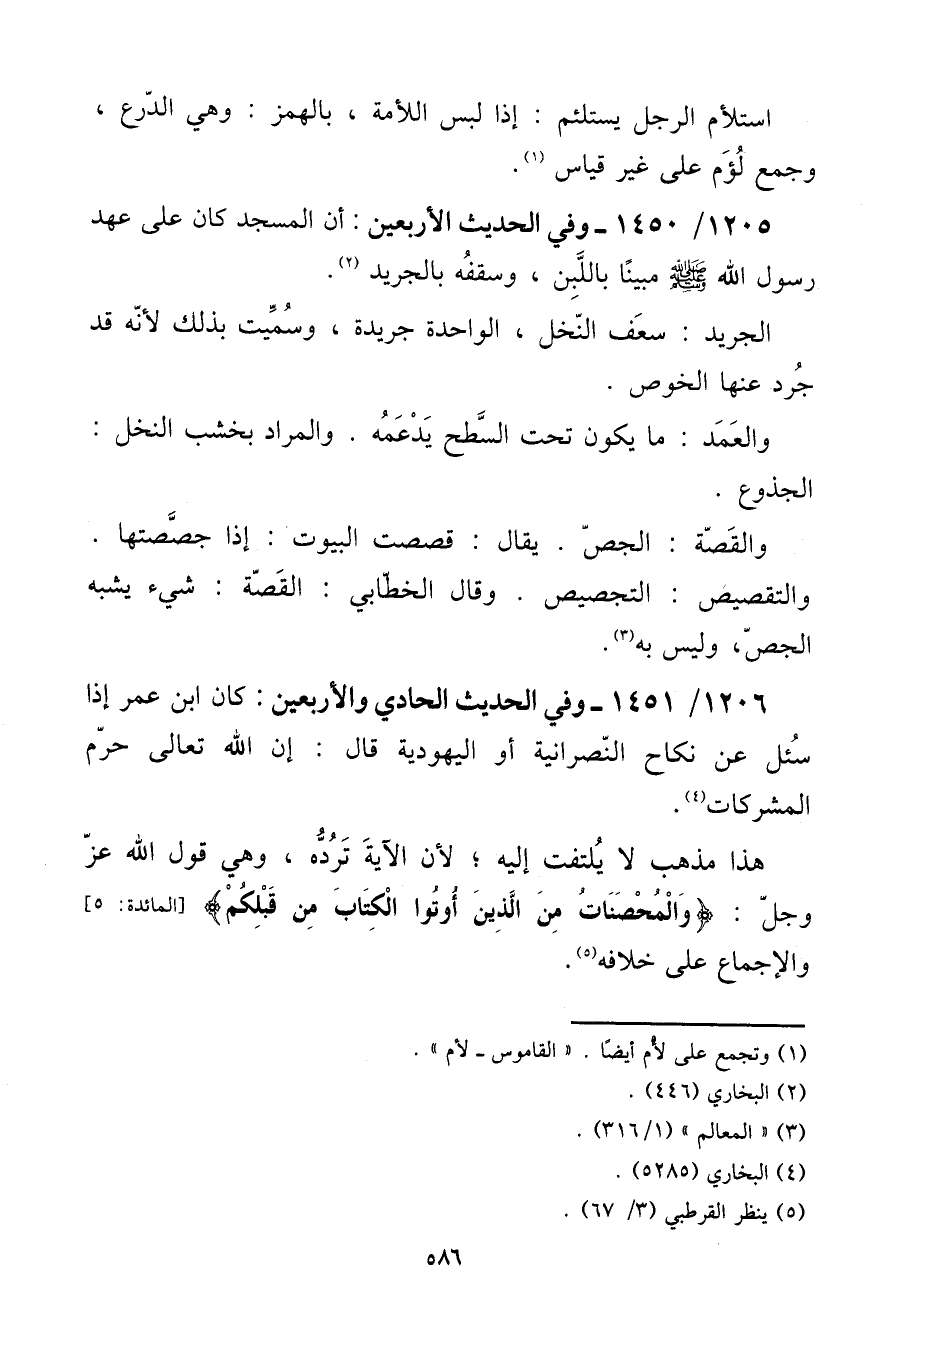 استلأم الرجل يستلئم : إذا لبس اللأمة ، بالهمز : وهي الدّرع ،
وجمع لُؤَم على غير قياس (١).
١٢٠٥/ ١٤٥٠ ـ وفي الحديث الأربعين : أن المسجد كان على عهد
رسول الله ﷺ مبينًا باللَّبِن ، وسقفُه بالجريد (٢).
الجريد : سعَف النّخل ، الواحدة جريدة ، وسُمِّيت بذلك لأنّه قد
جُرد عنها الخوص .
والعَمَد : ما يكون تحت السَّطح يَدْعَمُه . والمراد بخشب النخل :
الجذوع .
والقَصّة : الجصّ . يقال : قصصت البيوت : إذا جصَّصتها .
والتقصيص : التجصيص . وقال الخطّابي : القَصّة : شيء يشبه
الجصّ، وليس به(٣).
١٢٠٦/ ١٤٥١ ـ وفي الحديث الحادي والأربعين : كان ابن عمر إذا
سُئل عن نكاح النّصرانية أو اليهودية قال : إن الله تعالى حرّم
المشركات(٤).
هذا مذهب لا يُلتفت إليه ؛ لأن الآيةَ تَرُدُّه ، وهي قول الله عزّ
وجلّ : ﴿وَالْمُحْصَنَاتُ مِنَ الَّذِينَ أُوتُوا الْكِتَابَ مِن قَبْلِكُمْ﴾ [المائدة: ٥]
والإجماع على خلافه(٥).
(١) وتجمع على لأُم أيضًا . « القاموس ـ لأم » .
(٢) البخاري (٤٤٦) .
(٣) « المعالم » (٣١٦/١) .
(٤) البخاري (٥٢٨٥) .
(٥) ينظر القرطبي (٣/ ٦٧) .
٥٨٦